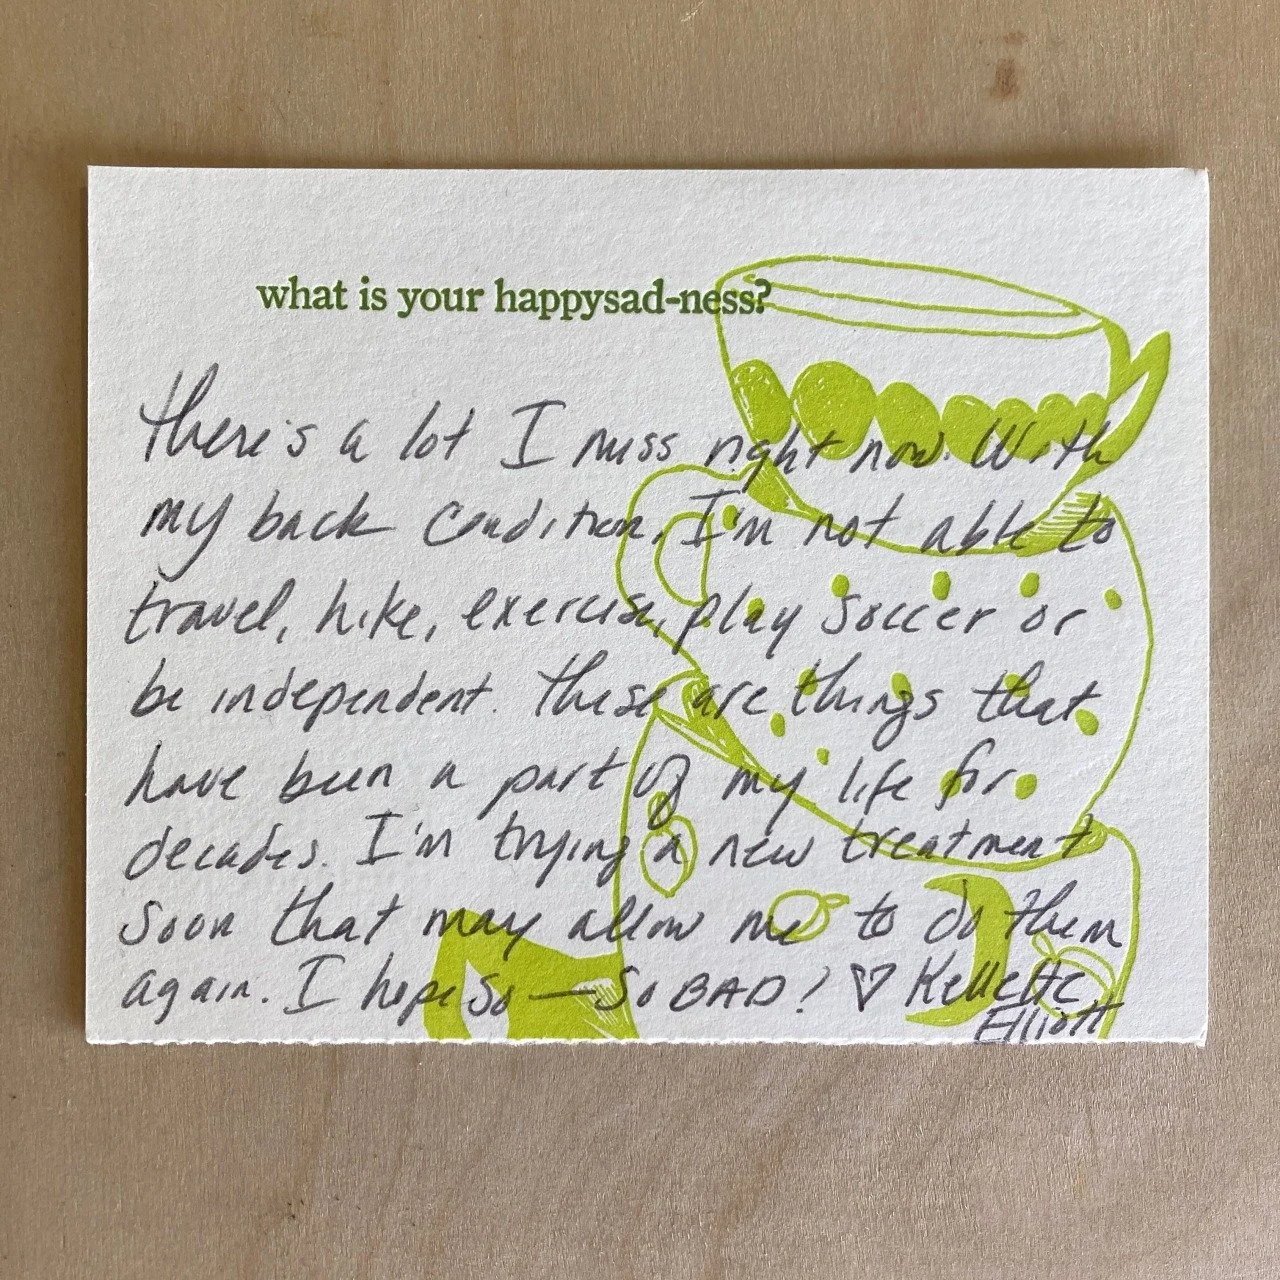 what is your happysad-ness?
There's a lot I miss right now. With
my back condition, I'm not able to
travel, hike, exercise, play soccer or
be independent. These are things that
have been a part of my life for
decades. I'm trying a new treatment
soon that may allow me to do them
again. I hope so — So BAD! ♡ Kellette
Elliott